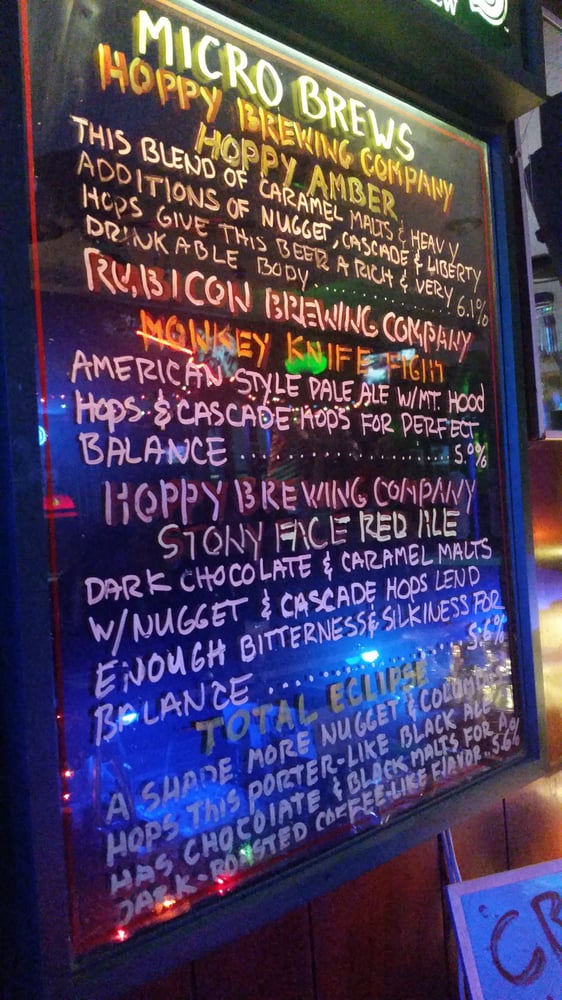 MICRO BREWS
HOPPY BREWING COMPANY
HOPPY AMBER
THIS BLEND OF CARAMEL MALTS & HEAVY
ADDITIONS OF NUGGET, CASCADE & LIBERTY
HOPS GIVE THIS BEER A RICH & VERY
DRINKABLE BODY .............. 6.1%
RUBICON BREWING COMPANY
MONKEY KNIFE FIGHT
AMERICAN STYLE PALE ALE W/MT. HOOD
HOPS & CASCADE HOPS FOR PERFECT
BALANCE .................... 5.0%
HOPPY BREWING COMPANY
STONY FACE RED ALE
DARK CHOCOLATE & CARAMEL MALTS
W/NUGGET & CASCADE HOPS LEND
ENOUGH BITTERNESS & SILKINESS FOR
BALANCE .................... 5.6%
TOTAL ECLIPSE
A SHADE MORE NUGGET &
HOPS THIS PORTER-LIKE BLACK ALE
HAS CHOCOLATE & BLACK MALTS FOR A
DARK-ROASTED COFFEE-LIKE FLAVOR .. 5.6%